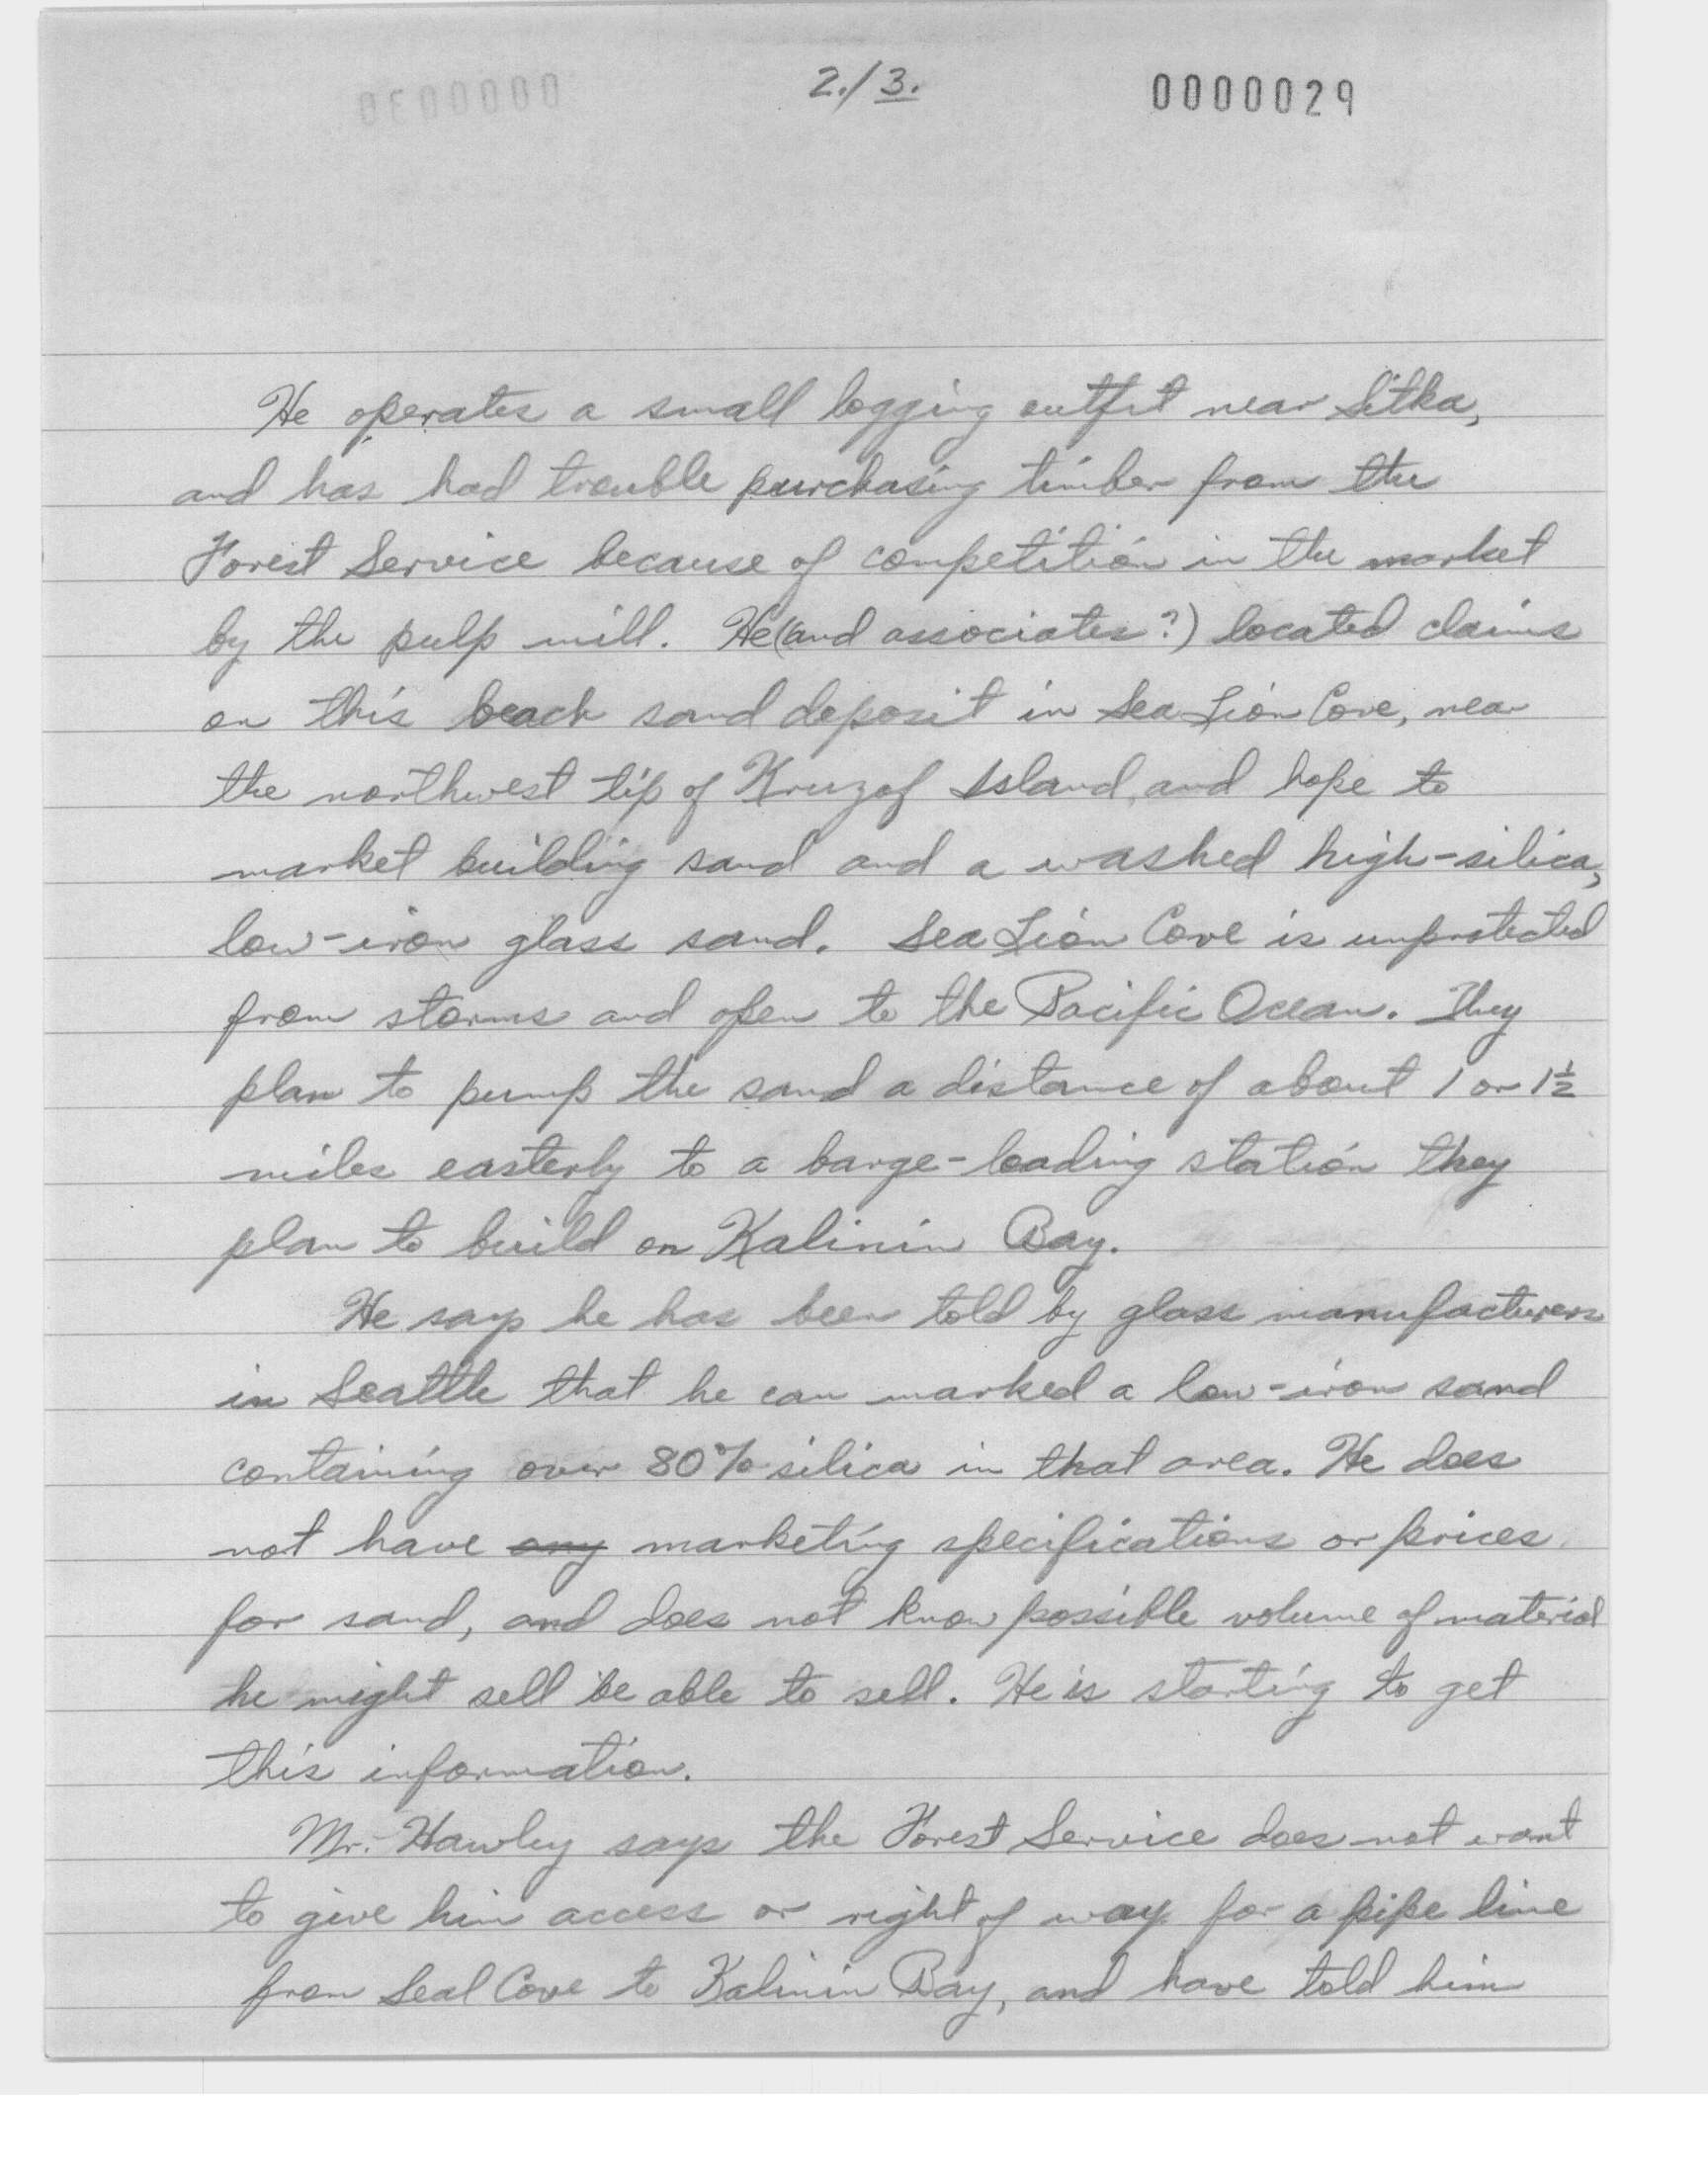 2./3.
0000029
He operates a small logging outfit near Sitka,
and has had trouble purchasing timber from the
Forest Service because of competition in the market
by the pulp mill. He (and associates?) located claims
on this beach sand deposit in Sea Lion Cove, near
the northwest tip of Kruzof Island, and hope to
market building sand and a washed high-silica,
low-iron glass sand. Sea Lion Cove is unprotected
from storms and open to the Pacific Ocean. They
plan to pump the sand a distance of about 1 or 1½
miles easterly to a barge-loading station they
plan to build on Kalinin Bay.
He says he has been told by glass manufacturers
in Seattle that he can marked a low-iron sand
containing over 80% silica in that area. He does
not have any marketing specifications or prices
for sand, and does not know possible volume of material
he might sell be able to sell. He is starting to get
this information.
Mr. Hawley says the Forest Service does not want
to give him access or right of way for a pipe line
from Seal Cove to Kalinin Bay, and have told him